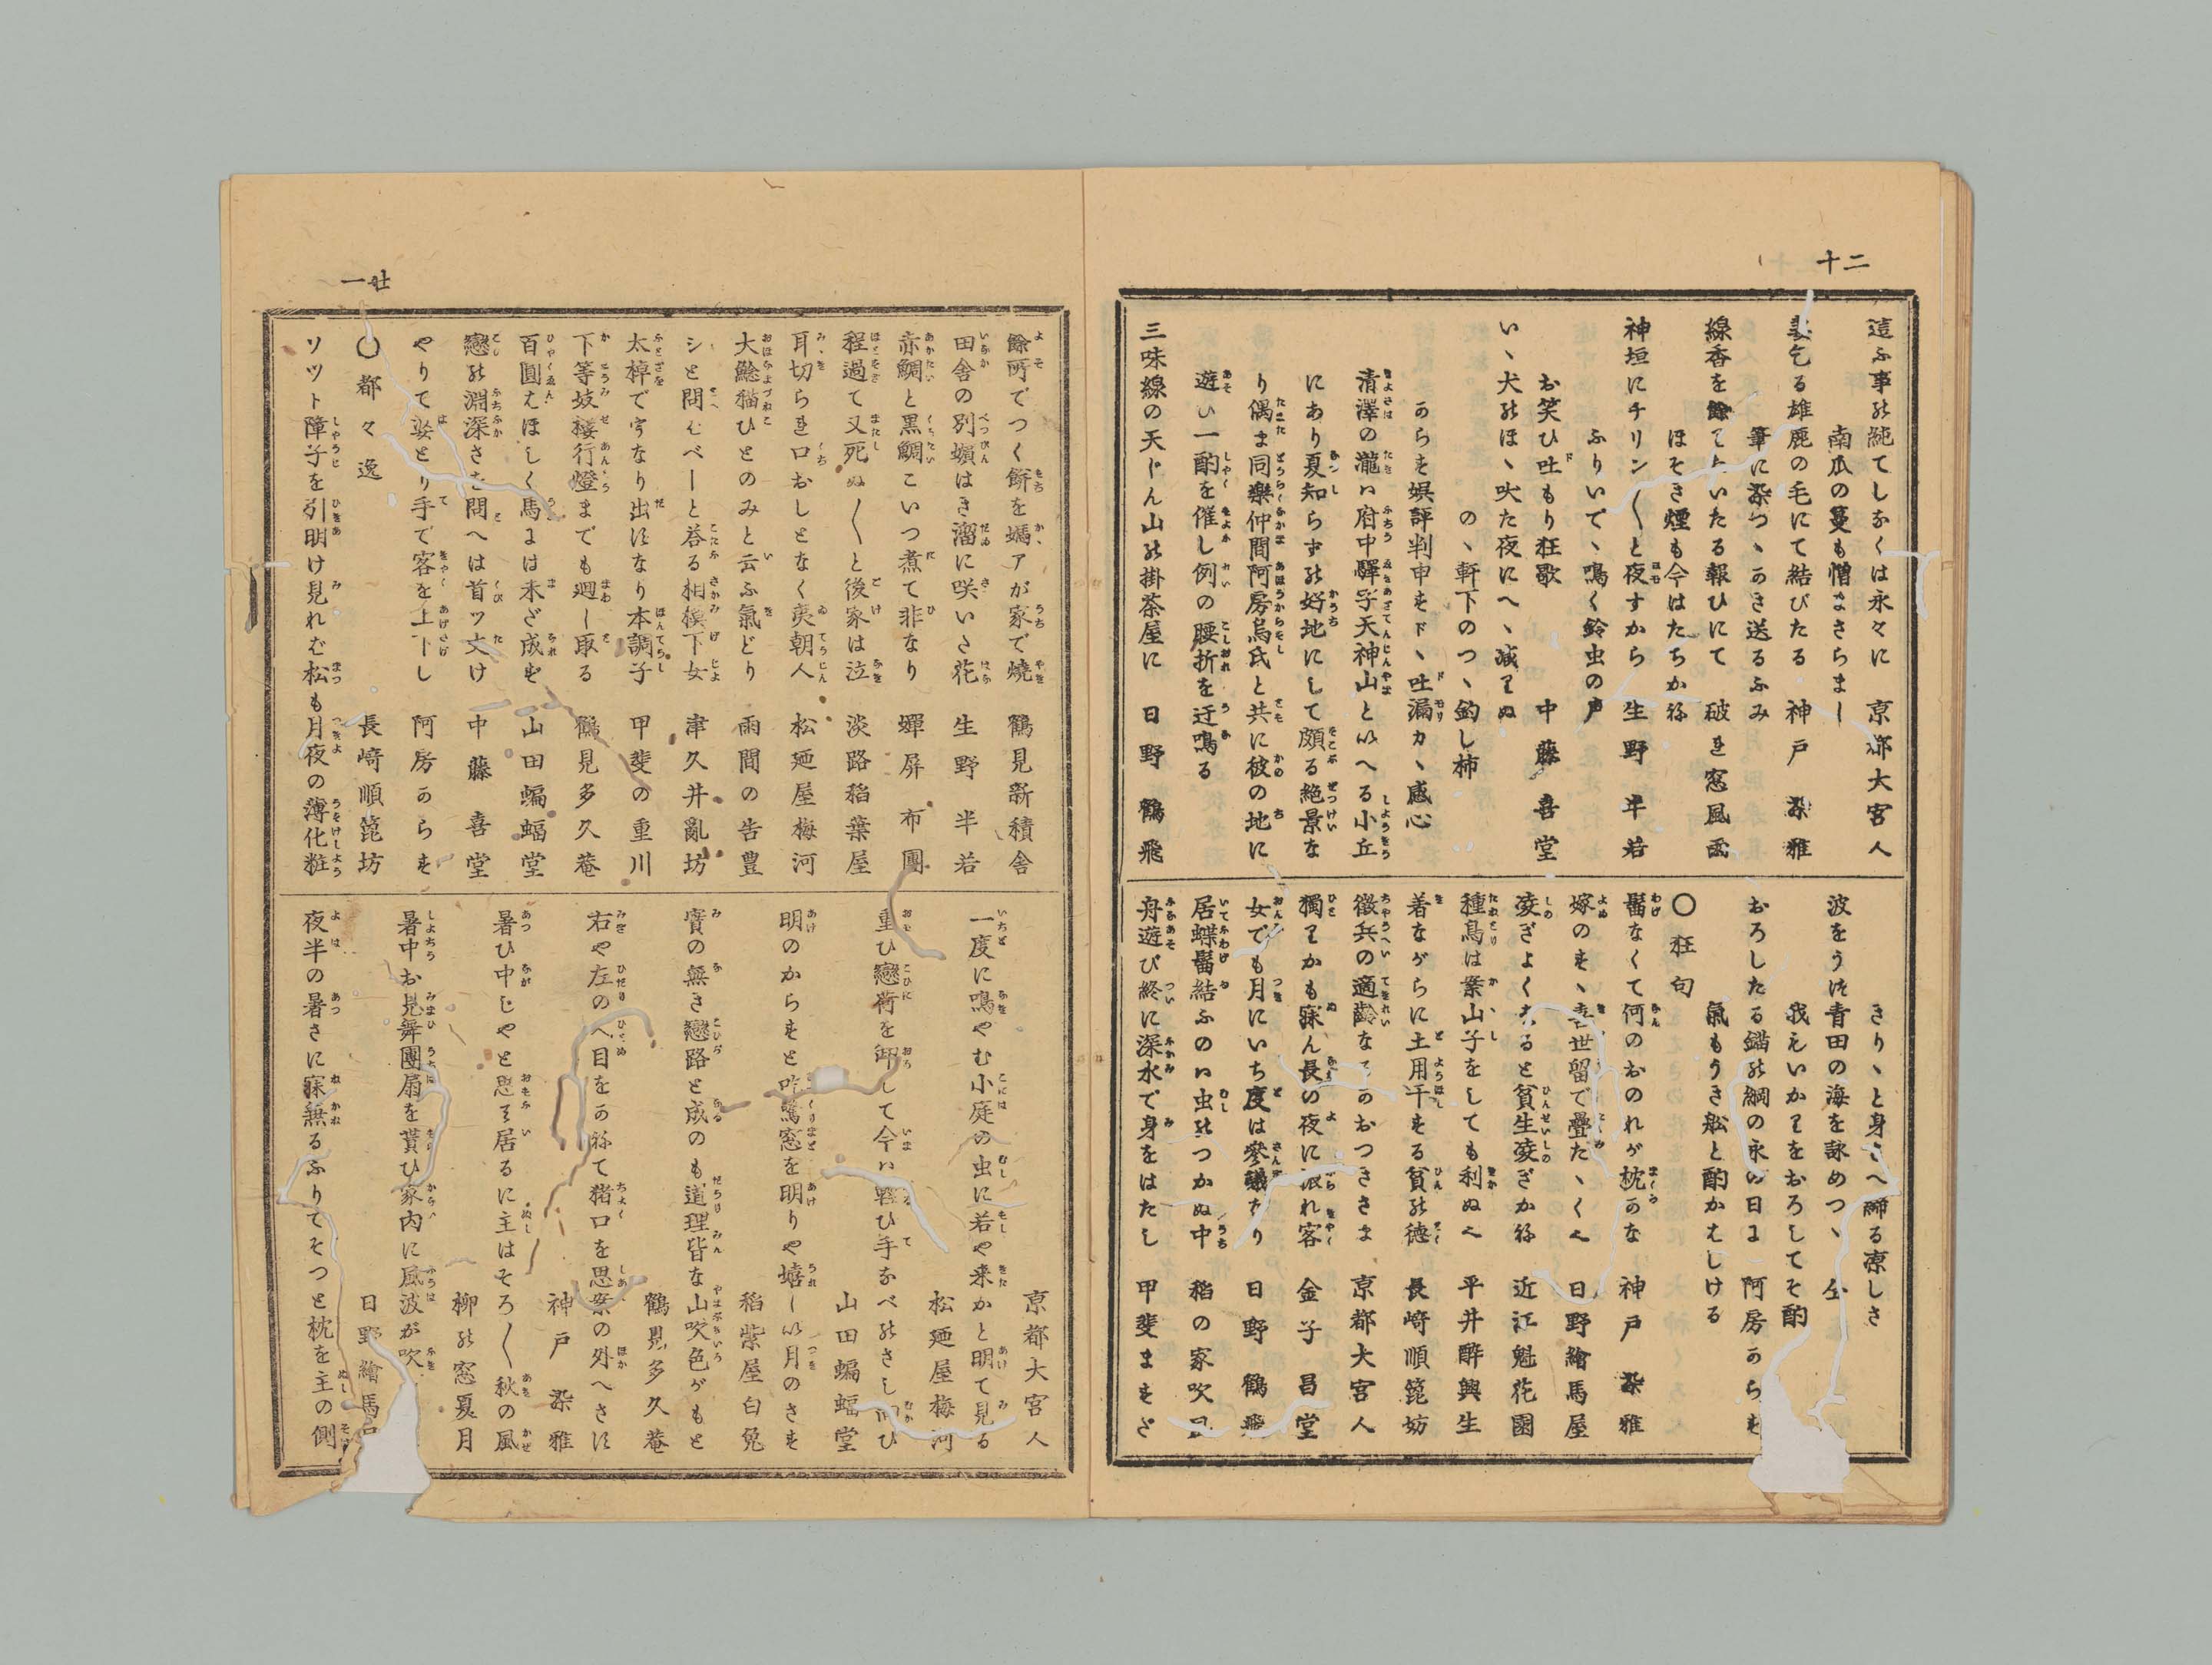 十二
這ふ事は純てしなくは永々に 京都大宮人
南瓜の蔓も憎まさらまし
妻乞る雄鹿の毛にて結びたる 神戸 染雅
筆に染つゝかき送るふみ
線香を餘てたいたる報ひにて 破れ窓風雨
ほそき煙も今はたちかね
神垣にチリン〳〵と夜すから 生野半若
ふりいでゝ鳴く鈴虫の声
お笑ひ吐もり狂歌 中藤喜堂
いゝ犬はほゝ吠た夜にへゝ減りぬ
のゝ軒下のつゝ釣し柿
からす娯評判申すドゝ吐漏カゝ感心
清澤の瀧は府中驛字天神山といへる小丘
にあり夏知らずの好地にして頗る絶景な
り偶ま同樂仲間阿房烏氏と共に彼の地に
遊い一酌を催し例の腰折を迂鳴る
三味線の天じん山の掛茶屋に 日野鶴飛
きりゝと身さへ締る凉しさ
波をうけ青田の海を詠めつゝ 仝
我もいかりをおろしてそ酌
おろしたる錨の綱の永の日に 阿房からす
氣もうき舩と酌かもしける
〇狂句
髷なくて何のおのれが枕かな 神戸染雅
嫁のすゝ喜世留で疊たゝくへ 日野繪馬屋
凌ぎよくなると貧生凌ぎかね 近江魁花園
種鳥は案山子をしても利ぬへ 平井醉興生
着ながらに土用干する貧の徳 長崎順箆妨
徴兵の適齢なそのおつきさま 京都大宮人
獨りかも寐ん長い夜に振れ客 金子昌堂
女でも月にいち度は參議なり 日野鶴飛
居蝶髷結ふのは虫のつかぬ中 稻の家吹
舟遊び終に深水で身をはたし 甲斐ますざ
廿一
餘所でつく餅を嬶アが家で燒 鶴見新積舎
田舎の別嬪はき溜に咲いた花 生野半若
赤鯛と黒鯛こいつ煮て非なり 蟬屏布團
程過て又死ぬ〳〵と後家は泣 淡路稻葉屋
耳切られ口おしとなく夷朝人 松廼屋梅河
大鯰猫ひとのみと云ふ氣どり 雨間の告豊
シと問むべしと荅る相模下女 津久井亂坊
太棹で字なり出はなり本調子 甲斐の重川
下等妓樓行燈までも廻し取る 鶴見多久菴
百圓もほしく馬には未ざ成ず 山田蝙蝠堂
戀の淵深さを問へは首ッ丈け 中藤喜堂
やりて婆とり手で客を上下し 阿房からす
〇都々逸 長崎順箆坊
ソット障子を引明け見れば松も月夜の薄化粧
京都大宮人
一度に鳴やむ小庭の虫に若や来たかと明て見る
松廼屋梅河
重ひ戀荷を卸して今は輕ひ手なべのさし向ひ
山田蝙蝠堂
明のからすと吃驚窓を明りや嬉しい月のさす
稻紫屋白兔
實の無き戀路と成のも道理皆な山吹色がもと
鶴見多久菴
右や左のへ目をかねて猪口を思案の外へさす
神戸染雅
暑ひ中じやと思ふて居るに主はそろ〳〵秋の風
柳の窓夏月
暑中お見舞團扇を貰ひ家内に風波が吹
日野繪馬
夜半の暑さに寐無るふりてそつと枕を主の側